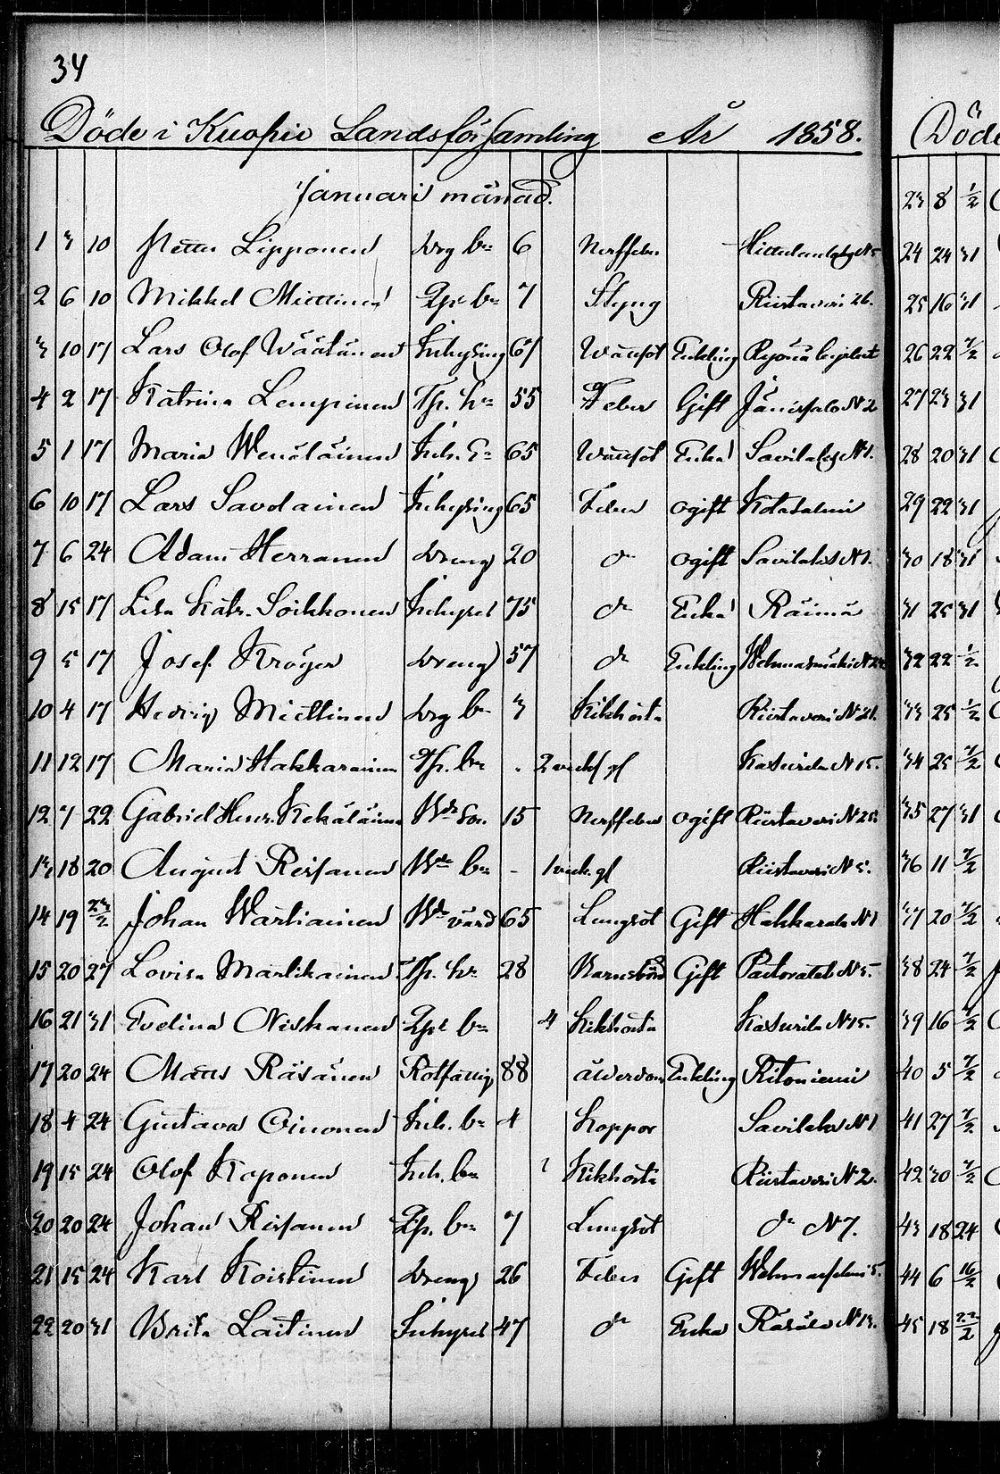 34
Döde i Kuopio Landsförsamling År 1858.
Januari månad.
1 3 10 Petter Lipponen drg bn 6 Nerffeber
2 6 10 Mikkel Miettinen bn 7 Styng Riistavesi 26.
3 10 17 Lars Olof Väätänen Inhysing 61 Wattsot Enkling
4 2 17 Katrina Lempinen Tp. hu 55 Feber Gift Jänissalo N 2
5 1 17 Maria Wenäläinen Inh. E 65 Wattsot Enka Savilaks N 1.
6 10 17 Lars Savolainen Inhysing 65 Feber ogift Kotasalmi
7 6 24 Adam Herranen dreng 20 do ogift Savilaks N 1.
8 15 17 Lisa Katr. Soikkonen Inhyses 75 do Enka Räimä
9 5 17 Josef Kröger dreng 57 do Enkling Wehmasmäki
10 4 17 Hedvig Miettinen drg bn 3 Kikhosta Riistavesi N 21.
11 12 17 Maria Hakkarainen Tp. bn . 2 veck gl Kasurila N 15.
12 7 22 Gabriel Henr. Kekäläinen Bde Son 15 Nerffeber ogift Riistavesi N 25.
13 18 20 August Reisanen Bde bn - 1 veck. gl Riistavesi N 5.
14 19 23/2 Johan Wartiainen Bde värd 65 Lungsot Gift Hakkarala N 1
15 20 27 Lovisa Martikainen Tp. hu 28 Barnsbörd Gift Pastoratet N 5.
16 21 31 Evelina Niskanen bn 4 Kikhosta Kasurila N 15.
17 20 24 Matts Räsänen Rotfattig 88 ålderdom Enkling Ritoniemi
18 4 24 Gustava Oinonen Inh. bn 4 Koppor Savilaks N 1
19 15 24 Olof Koponen Inh. bn 1 Kikhosta Riistavesi N 2.
20 20 24 Johan Reisanen bn 7 Lungsot do N 7.
21 15 24 Karl Koistinen dreng 26 Feber Gift
22 20 31 Brita Laitinen Inhyses 47 do Enka Räsälä N 13.
Döde
23 8 1/2
24 24 31
25 16 31
26 22 7/2
27 23 31
28 20 31
29 22 31
30 18 31
31 25 31
32 22 1/2
33 25 1/2
34 25 7/2
35 27 31
36 11 7/2
37 20 7/2
38 24 7/2
39 16 7/2
40 5 7/2
41 27 7/2
42 30 7/2
43 18 24
44 6 16/2
45 18 22/2